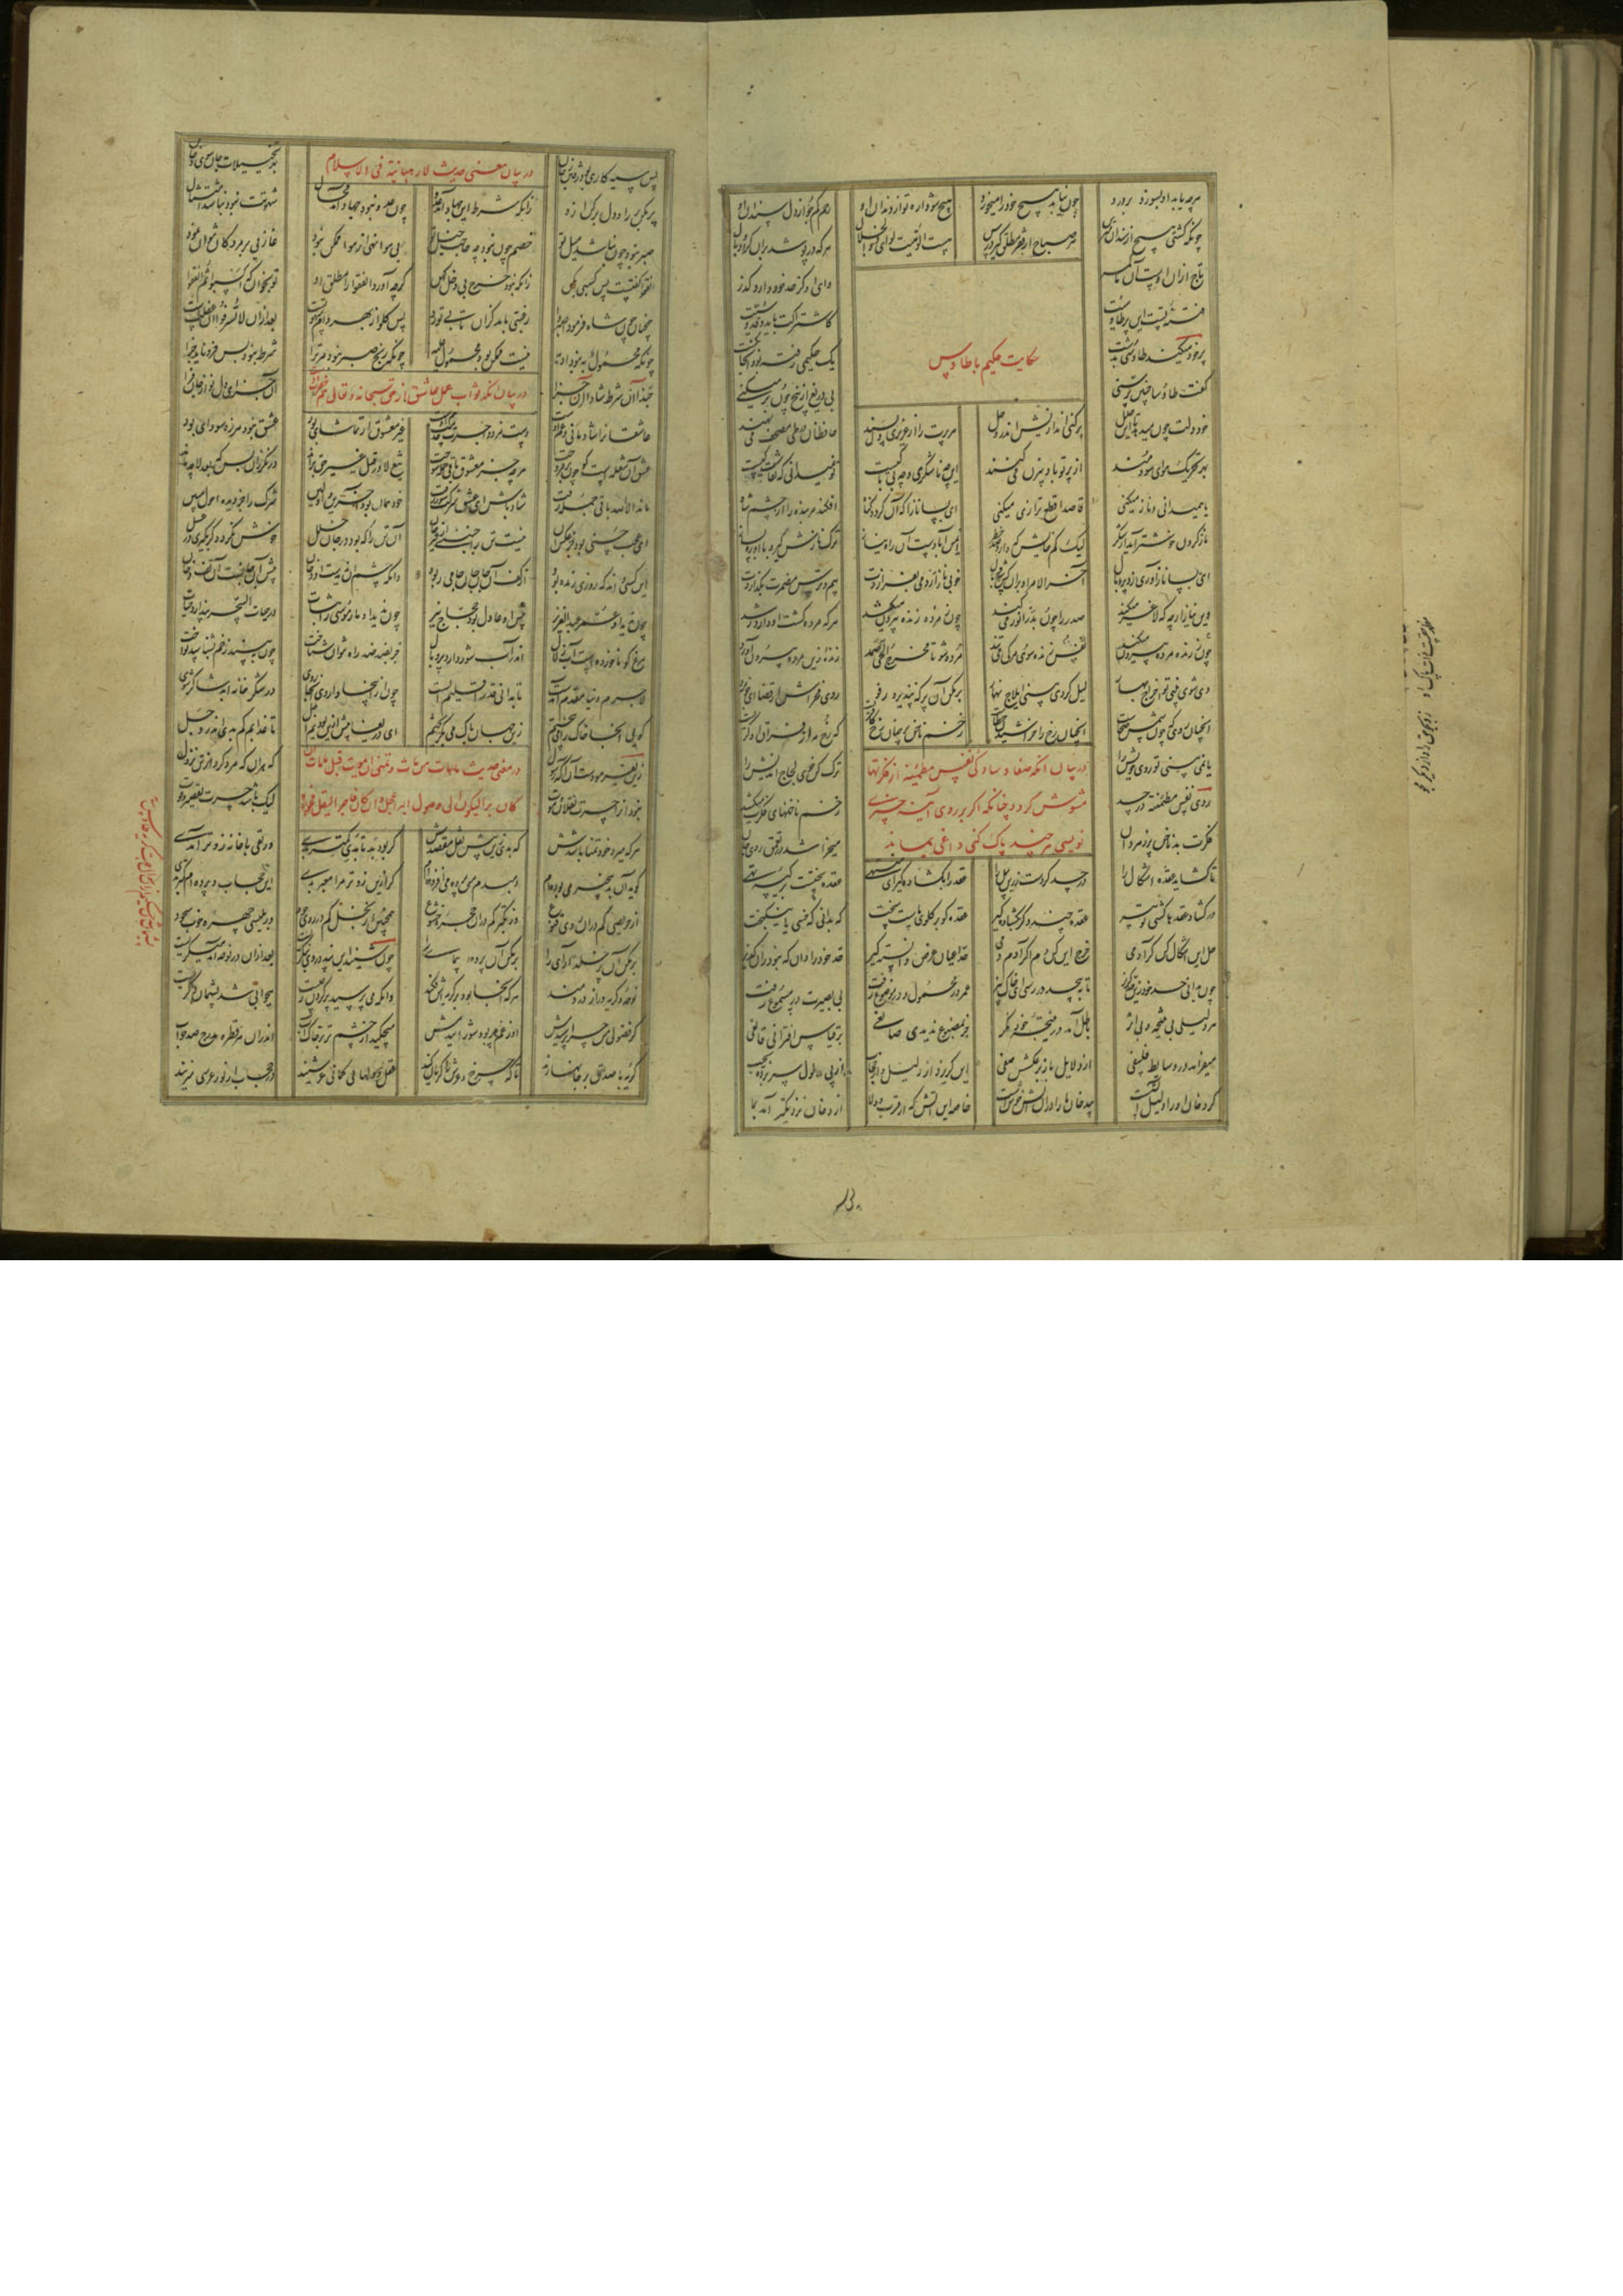 هرچه یابد او بسوزد بردرد چون نیابد هیچ خود را میخورد هیچ شو واره تو از دندان او رحم کم جو از دل سندان او
چونکه گشتی هیچ از سندان مترس هر صباح از فقر مطلق گیر درس هست الوهیت ردای ذوالجلال هرکه درپوشد بران گردد وبال
تاج ازان اوست آن ما کمر وای او کز حد خود دارد گذر
فتنه تست این پر طاوسیت کاشتراکت باید و قدوسیت
حکایت حکیم با طاوس
پر خود میکند طاوسی بدشت یک حکیمی رفته بود آنجا بگشت
گفت طاوسا چنین پر سنی بی دریغ از بیخ چون بر میکنی
خود دلت چون میدهد تا این حلل بر کنی اندازیش اندر وحل هر پرت را از عزیزی و پسند حافظان در طی مصحف می نهند
بهر تحریک هوای سودمند از پر تو باد بیزن می کنند این چه ناشکری و چه بی باکیست تو نمیدانی که نقاشش کیست
یا همیدانی و نازی میکنی قاصدا قطع طرازی میکنی ای بسا نازا که آن گردد گناه افکند مر بنده را از چشم شاه
ناز کردن خوشتر آید از شکر لیک کم خایش که دارد صد خطر ایمن آبادست آن راه نیاز ترک نازش گیر و با آن ره بساز
ای بسا نازآوری زد پر و بال آخر الامر آن بران کس شد وبال خوبی ناز ار دمی بفرازدت بیم و ترس مضمرت بگدازدت
وین نیاز ارچه که لاغر میکند صدر را چون بدر انور میکند چون ز مرده زنده بیرون میکشد هرکه مرده گشت او دارد رشد
چون ز زنده مرده بیرون میکند نفس زنده سوی مرگی می تند مرده شو تا مخرج الحی الصمد زنده زین مرده بیرون آورد
دی شوی بینی تو اخراج بهار لیل گردی بینی ایلاج نهار بر مکن آن پر که نپذیرد رفو روی مخراش از عزا ای خوبرو
آنچنان رویی که چون شمس ضحاست آنچنان رخ را خراشیدن خطاست زخم ناخن بر چنان رخ کافریست که رخ مه در فراق او گریست
یا نمی بینی تو روی خویش را ترک کن خوی لجاج اندیش را
در بیان آنکه صفا و سادگی نفس مطمئنه از فکرتها
مشوش گردد چنانکه اگر بر روی آینه چیزی
نویسی هرچند پاک کنی داغی بماند
روی نفس مطمئنه در جسد زخم ناخنهای فکرت میکشد
فکرت بد ناخن پر زهر دان میخراشد در تعمق روی جان
تا گشاید عقده اشکال را در حدث کردست زرین بال را عقده را بگشاده گیر ای منتهی عقده سختست بر کیسه تهی
در گشاد عقدها گشتی تو پیر عقده چند دگر بگشاده گیر عقده کو بر گلوی ماست سخت که بدانی که خسی یا نیکبخت
حل این اشکال کن گر آدمی خرج این کن دم اگر آدم دمی حد اعیان و عرض دانسته گیر حد خود را دان که نبود زان گزیر
چون بدانی حد خود زین حد گریز تا به بیحد در رسی ای خاک بیز عمر در محمول و در موضوع رفت بی بصیرت عمر در مسموع رفت
هر دلیلی بی نتیجه و بی اثر باطل آمد در نتیجه خود نگر جز بمصنوعی ندیدی صانعی بر قیاس اقترانی قانعی
میفزاید در وسایط فلسفی از دلایل باز بر عکسش صفی این گریزد از دلیل و از حجاب از پی مدلول سر برده بجیب
گر دخان او را دلیل آتشست بیدخان ما را دران آتش خوشست خاصه این آتش که از قرب و ولا از دخان نزدیکتر آمد بما
پس سیه کاری بود رفتن ز جان بهر تخییلات جان سوی دخان
در بیان معنی حدیث لا رهبانیة فی الاسلام
بر مکن پر را و دل بر کن ازو زانکه شرط این جهاد آمد عدو چون عدو نبود جهاد آمد محال شهوتت نبود نباشد امتثال
صبر نبود چون نباشد میل تو خصم چون نبود چه حاجت خیل تو بی هوا نهی از هوا ممکن نبود غازیی بر مردگان نتوان نمود
انفقوا گفتست پس کسبی بکن زانکه نبود خرج بی دخل کهن گرچه آورد انفقوا را مطلق او تو بخوان که اکسبوا ثم انفقوا
همچنان چون شاه فرمود اصبروا رغبتی باید کزان تابی تو رو پس کلوا از بهر دام شهوتست بعد ازان لا تسرفوا آن عفتست
چونکه محمول به نبود لدیه نیست ممکن بود محمول علیه چونکه رنج صبر نبود مر ترا شرط نبود پس فرو ناید جزا
حبذا آن شرط و شادا آن جزا آن جزای دلنواز جانفزا
در بیان آنکه ثواب عمل عاشق از حق سبحانه و تعالی هم حق است
عاشقان را شادمانی و غم اوست دست مزد و اجرت خدمت هم اوست غیر معشوق ار تماشایی بود عشق نبود هرزه سودایی بود
عشق آن شعله است کو چون برفروخت هرچه جز معشوق باقی جمله سوخت تیغ لا در قتل غیر حق براند درنگر زان پس که بعد لا چه ماند
ماند الا الله باقی جمله رفت شاد باش ای عشق شرکت سوز زفت خود همان بود آخرین و اولین شرک را جز دیده احول مبین
ای عجب حسنی بود جز عکس آن نیست تن را جنبشی از غیر جان آن تنی را که بود در جان خلل خوش نگردد گر بگیری در عسل
این کسی داند که روزی زنده بود از کف آن جان جان جامی ربود وانکه چشم او ندیدست آن رخان پیش او جانست آن تف و دخان
چون ندید او عمر عبدالعزیز پیش او عادل بود حجاج نیز چون ندید او مار موسی را ثبات در حبال سحر پندارد حیات
مرغ کو ناخورده است آب زلال اندر آب شور دارد پر و بال جز بضد ضد را همی نتوان شناخت چون ببیند زخم بشناسد نواخت
لاجرم دنیا مقدم آمدست تا بدانی قدر اقلیم الست چون ازینجا وارهی آنجا روی در شکرخانه ابد شاکر شوی
گویی آنجا خاک را می بیختم زین جهان پاک می بگریختم ای دریغا پیش ازین بودیم اجل تا عذابم کم بدی اندر وجل
زین بفرمودست آن آگه رسول که هر آنکه مرد و کرد از تن نزول
نبود او را حسرت نقلان و موت لیک باشد حسرت تقصیر و فوت
در معنی حدیث ما مات من مات و تمنی ان یموت قبل ما مات
ان کان برا لیکون الی وصول البر اعجل و ان کان فاجرا لیقل فجوره
هرکه میرد خود تمنا باشدش که بدی زین پیش نقل مقصدش گر بود بد تا بدی کمتر بدی ور تقی تا خانه زوتر آمدی
گوید آن بد بیخبر می بوده ام دم بدم من پرده می افزوده ام گر ازین زوتر مرا معبر بدی این حجاب و پرده ام کمتر بدی
از حریصی کم دران روی قنوع وز تکبر کم دران چهره خشوع همچنین از بخل کم در روی جود وز بلیسی چهره خوب سجود
بر مکن آن پر خلد آرای را بر مکن آن پر ره پیمای را چون شنید این پند در وی بنگریست بعد ازان در نوحه آمد میگریست
نوحه و گریه دراز دردمند هرکه آنجا بود بر گریه ش فکند وانکه می پرسید پر کندن ز چیست بیجوابی شد پشیمان و گریست
کز فضولی من چرا پرسیدمش او ز غم پر بود شورانیدمش میچکید از چشم تر بر خاک آب اندران هر قطره مدرج صد جواب
گریه با صدق بر جانها زند تا که چرخ و عرش را گریان کند عقل و دلها بی گمانی عرشیند در حجاب از نور عرشی میزیند